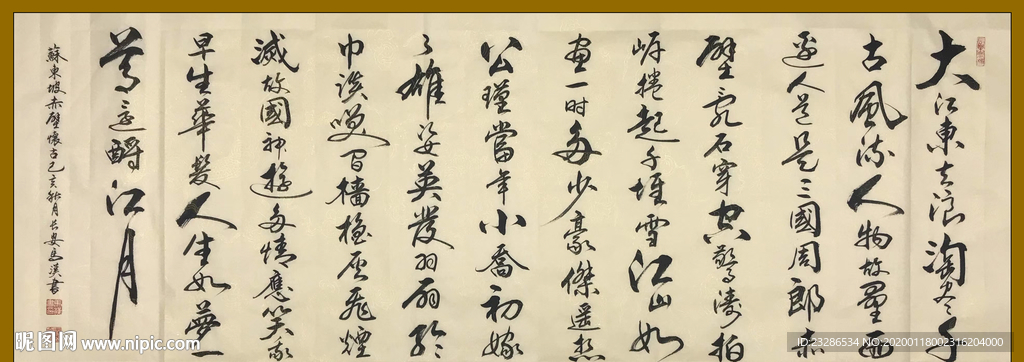 大江東去浪淘盡千
古風流人物故壘西
邊人道是三國周郎赤
壁亂石穿空驚濤拍
岸捲起千堆雪江山如
畫一時多少豪傑遙想
公瑾當年小喬初嫁
了雄姿英發羽扇綸
巾談笑間檣櫓灰飛煙
滅故國神遊多情應笑我
早生華髮人生如夢一
尊還酹江月
蘇東坡赤壁懷古己亥秋月長安書
昵图网 www.nipic.com
ID:23286534 NO:20200118002316204000